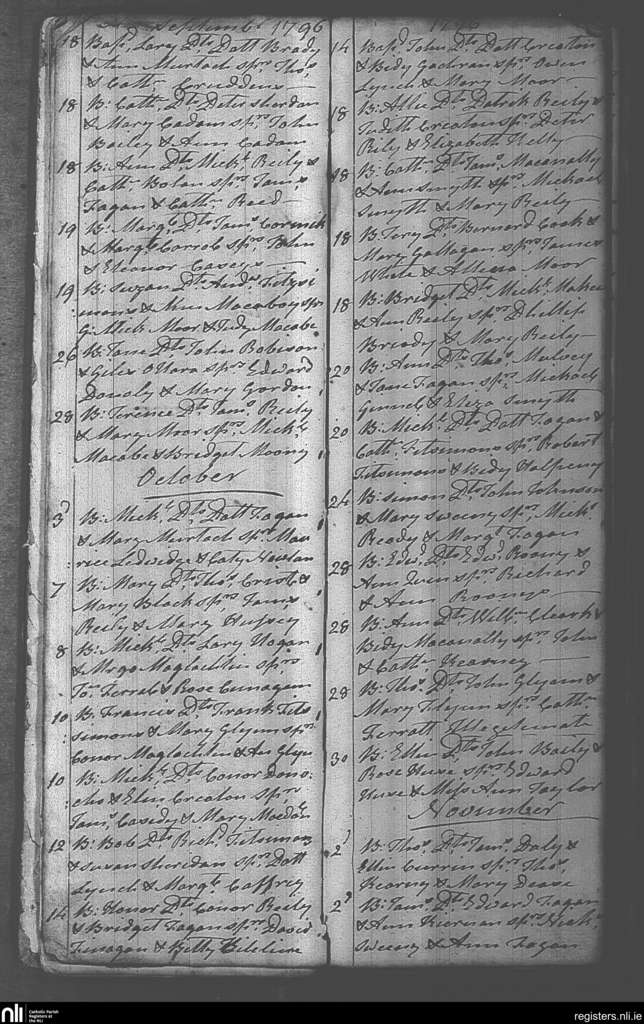 September 1796
18 Bapd. Lary Dto. Patt Brady
& Ann Murtach sprs. Thos.
& Cathn.
18 B: Cathn. Dto. Peter Sherdan
& Mary Cadam sprs. John
Bailey & Ann Cadam
18 B: Ann Dto. Michl. Reily &
Cathn. Bolan sprs. Jams.
Fagan & Cathn. Reed
19 B: Margt. Dto. Jams. Cormick
& Margt. sprs. John
& Eleonor Casey
19 B: Suzan Dto. Andw. Fitzsi
mons & Ann sprs
Mick Moor & Judy Macabe
26 B: Jane Dto. John Robison
& Giles O'Hara sprs. Edward
& Mary Gordon
28 B: Terence Dto. Jams. Reily
& Mary Moor sprs. Michl.
Macabe & Bridget Moony
October
3d B: Michl. Dto. Patt Fagan
& Mary Murtach sprs. Mau
rice Ledwidge & Caty Nowlan
7 B: Mary Dto. Thos. &
Mary Black sprs. Jams.
Reily & Mary Hussey
8 B: Michl. Dto. Lary Hogan
& Maglachlen sprs
Ferral & Rose Cunagan
10 B: Francis Dto. Frank Fits
simons & Mary Glynn sprs
Conor Maglachlen & An Glyn
10 B: Michl. Dto. Conor Dono
& Elin Creaton sprs
Jams. Casedy & Mary
12 B: Bob Dto. Richd. Fitsimons
& Susan Sheridan sprs. Patt
Lynch & Margt. Caffrey
14 B: Honor Dto. Conor Reily
& Bridget Fagan sprs. David
Finagan & Kitty
1796
14 Bapd. John Dto. Patt Creaton
& Bidy Cochran sprs. Owen
Lynch & Mary Moor
18 B: Allie Dto. Patrik Reily &
Judith Creaton sprs. Peter
Rily & Elizabeth
18 B: Cathn. Dto. Jams. Macanally
& Ann Smyth sprs. Michael
Smyth & Mary Reily
18 B: Terry Dto. Barnard Cook &
Mary Gallagan sprs. James
White & Moor
18 B: Bridget Dto. Michl.
& Ann Reily sprs. Phillip
Bready & Mary Reily
20 B: Ann Dto. Thos. Mulvey
& Jane Fagan sprs. Michael
& Eliza Smyth
20 B: Michl. Dto. Patt Fagan &
Cath. Fitsimons sprs. Robert
Fitsimons & Bidy Halpeney
26 B: Simon Dto. John Johnson
& Mary Sweeny sprs. Michl.
Ready & Margt. Fagan
28 B: Edwd. Dto. Edwd. Rooney &
Ann sprs. Richard
& Ann Rooney
28 B: Ann Dto. Willm. Cleark &
Bidy Macanally sprs. John
& Cathn. Kearney
28 B: Thos. Dto. John Glynn &
Mary sprs. Cathn.
Ferrall Illegetimate
30 B: Ellin Dto. John Baily &
Rose sprs. Edward
& Miss Ann Taylor
November
2d B: Thos. Dto. Jams. Daly &
Ellin Currin sprs. Thos.
Kearney & Mary Dease
2d B: Jams. Dto. Edward Fagan
& Ann Kiernan sprs. Michl.
Sweeny & Ann Fagan
nli Catholic Parish Registers at the NLI
registers.nli.ie